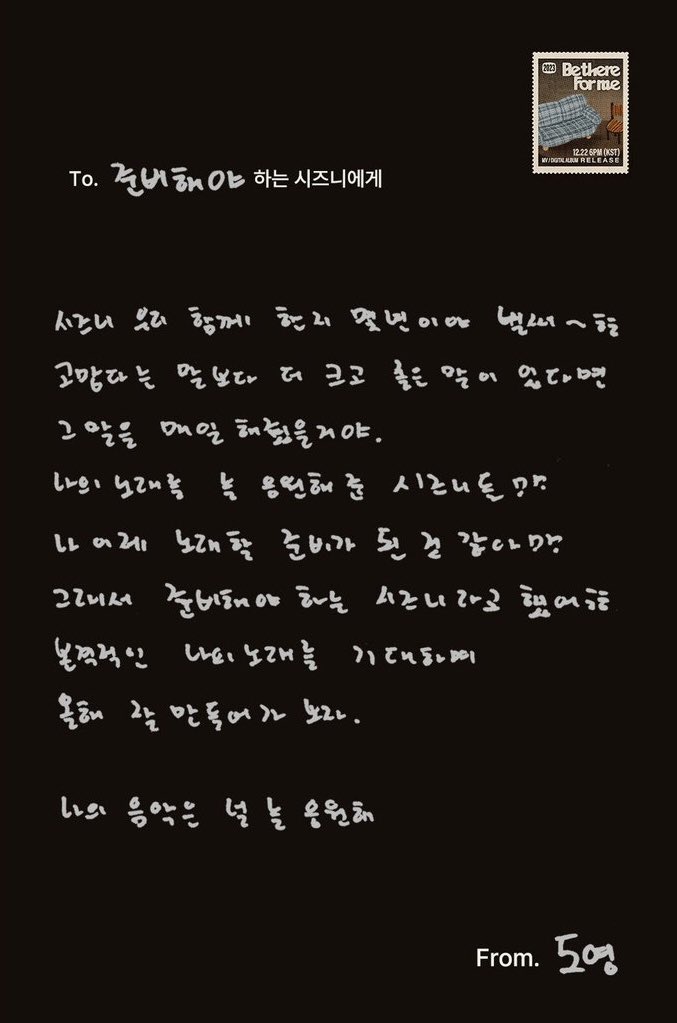 2023
Be there
For me
12.22 6PM (KST)
MV / DIGITAL ALBUM RELEASE
To. 준비해야 하는 시즈니에게
시즈니 우리 함께 한지 몇년이야 벌써~
고맙다는 말보다 더 크고 좋은 말이 있다면
그 말을 매일 해줬을거야.
나의 노래를 늘 응원해 준 시즈니들
나 이제 노래할 준비가 된 것 같아
그래서 준비해야 하는 시즈니라고 했어
본격적인 나의 노래를 기대하며
올해 잘 만들어가 보자.
나의 음악은 널 늘 응원해
From. 도영